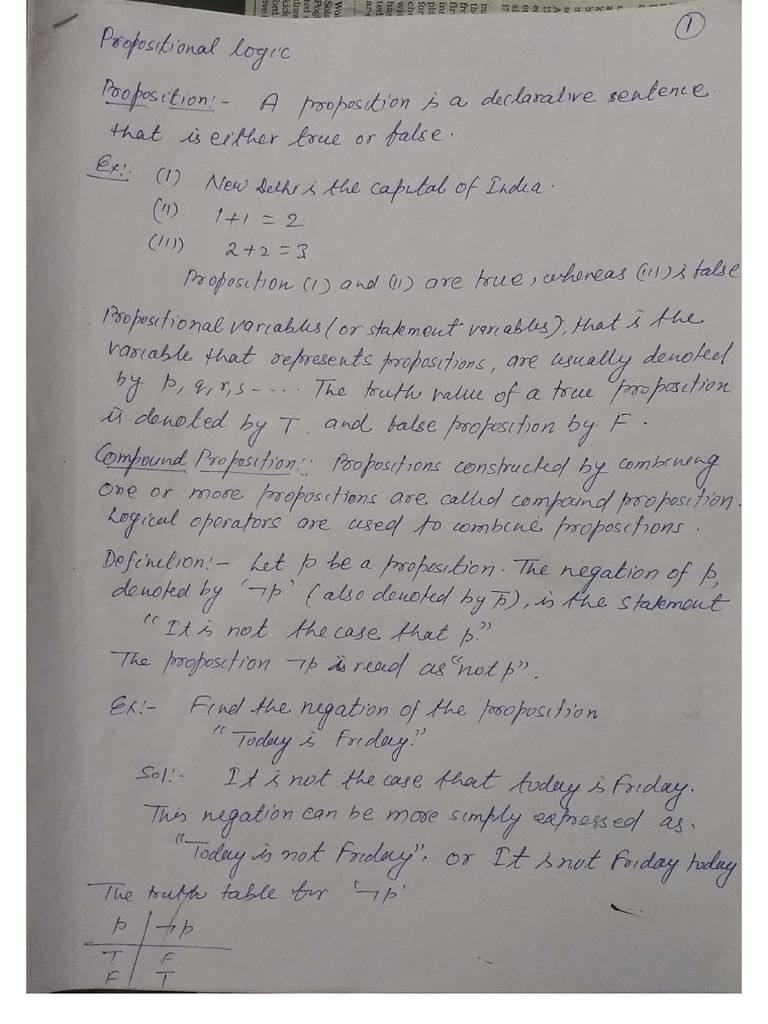 ①
Propositional logic
Proposition:- A proposition is a declarative sentence
that is either true or false.
Ex:- (I) New Delhi is the capital of India.
(II) 1+1 = 2
(III) 2+2 = 3
Proposition (I) and (II) are true, whereas (III) is false
Propositional variables (or statement variables), that is the
variable that represents propositions, are usually denoted
by p, q, r, s - .... The truth value of a true proposition
is denoted by T and false proposition by F.
Compound Proposition:: Propositions constructed by combining
one or more propositions are called compound proposition.
Logical operators are used to combine propositions.
Definition:- Let p be a proposition. The negation of p,
denoted by '¬p' (also denoted by p̅), is the statement
"It is not the case that p."
The proposition ¬p is read as "not p".
Ex:- Find the negation of the proposition
"Today is Friday."
Sol:- It is not the case that today is Friday.
This negation can be more simply expressed as.
"Today is not Friday". or It is not Friday today
The truth table for '¬p'
p | ¬p
T | F
F | T